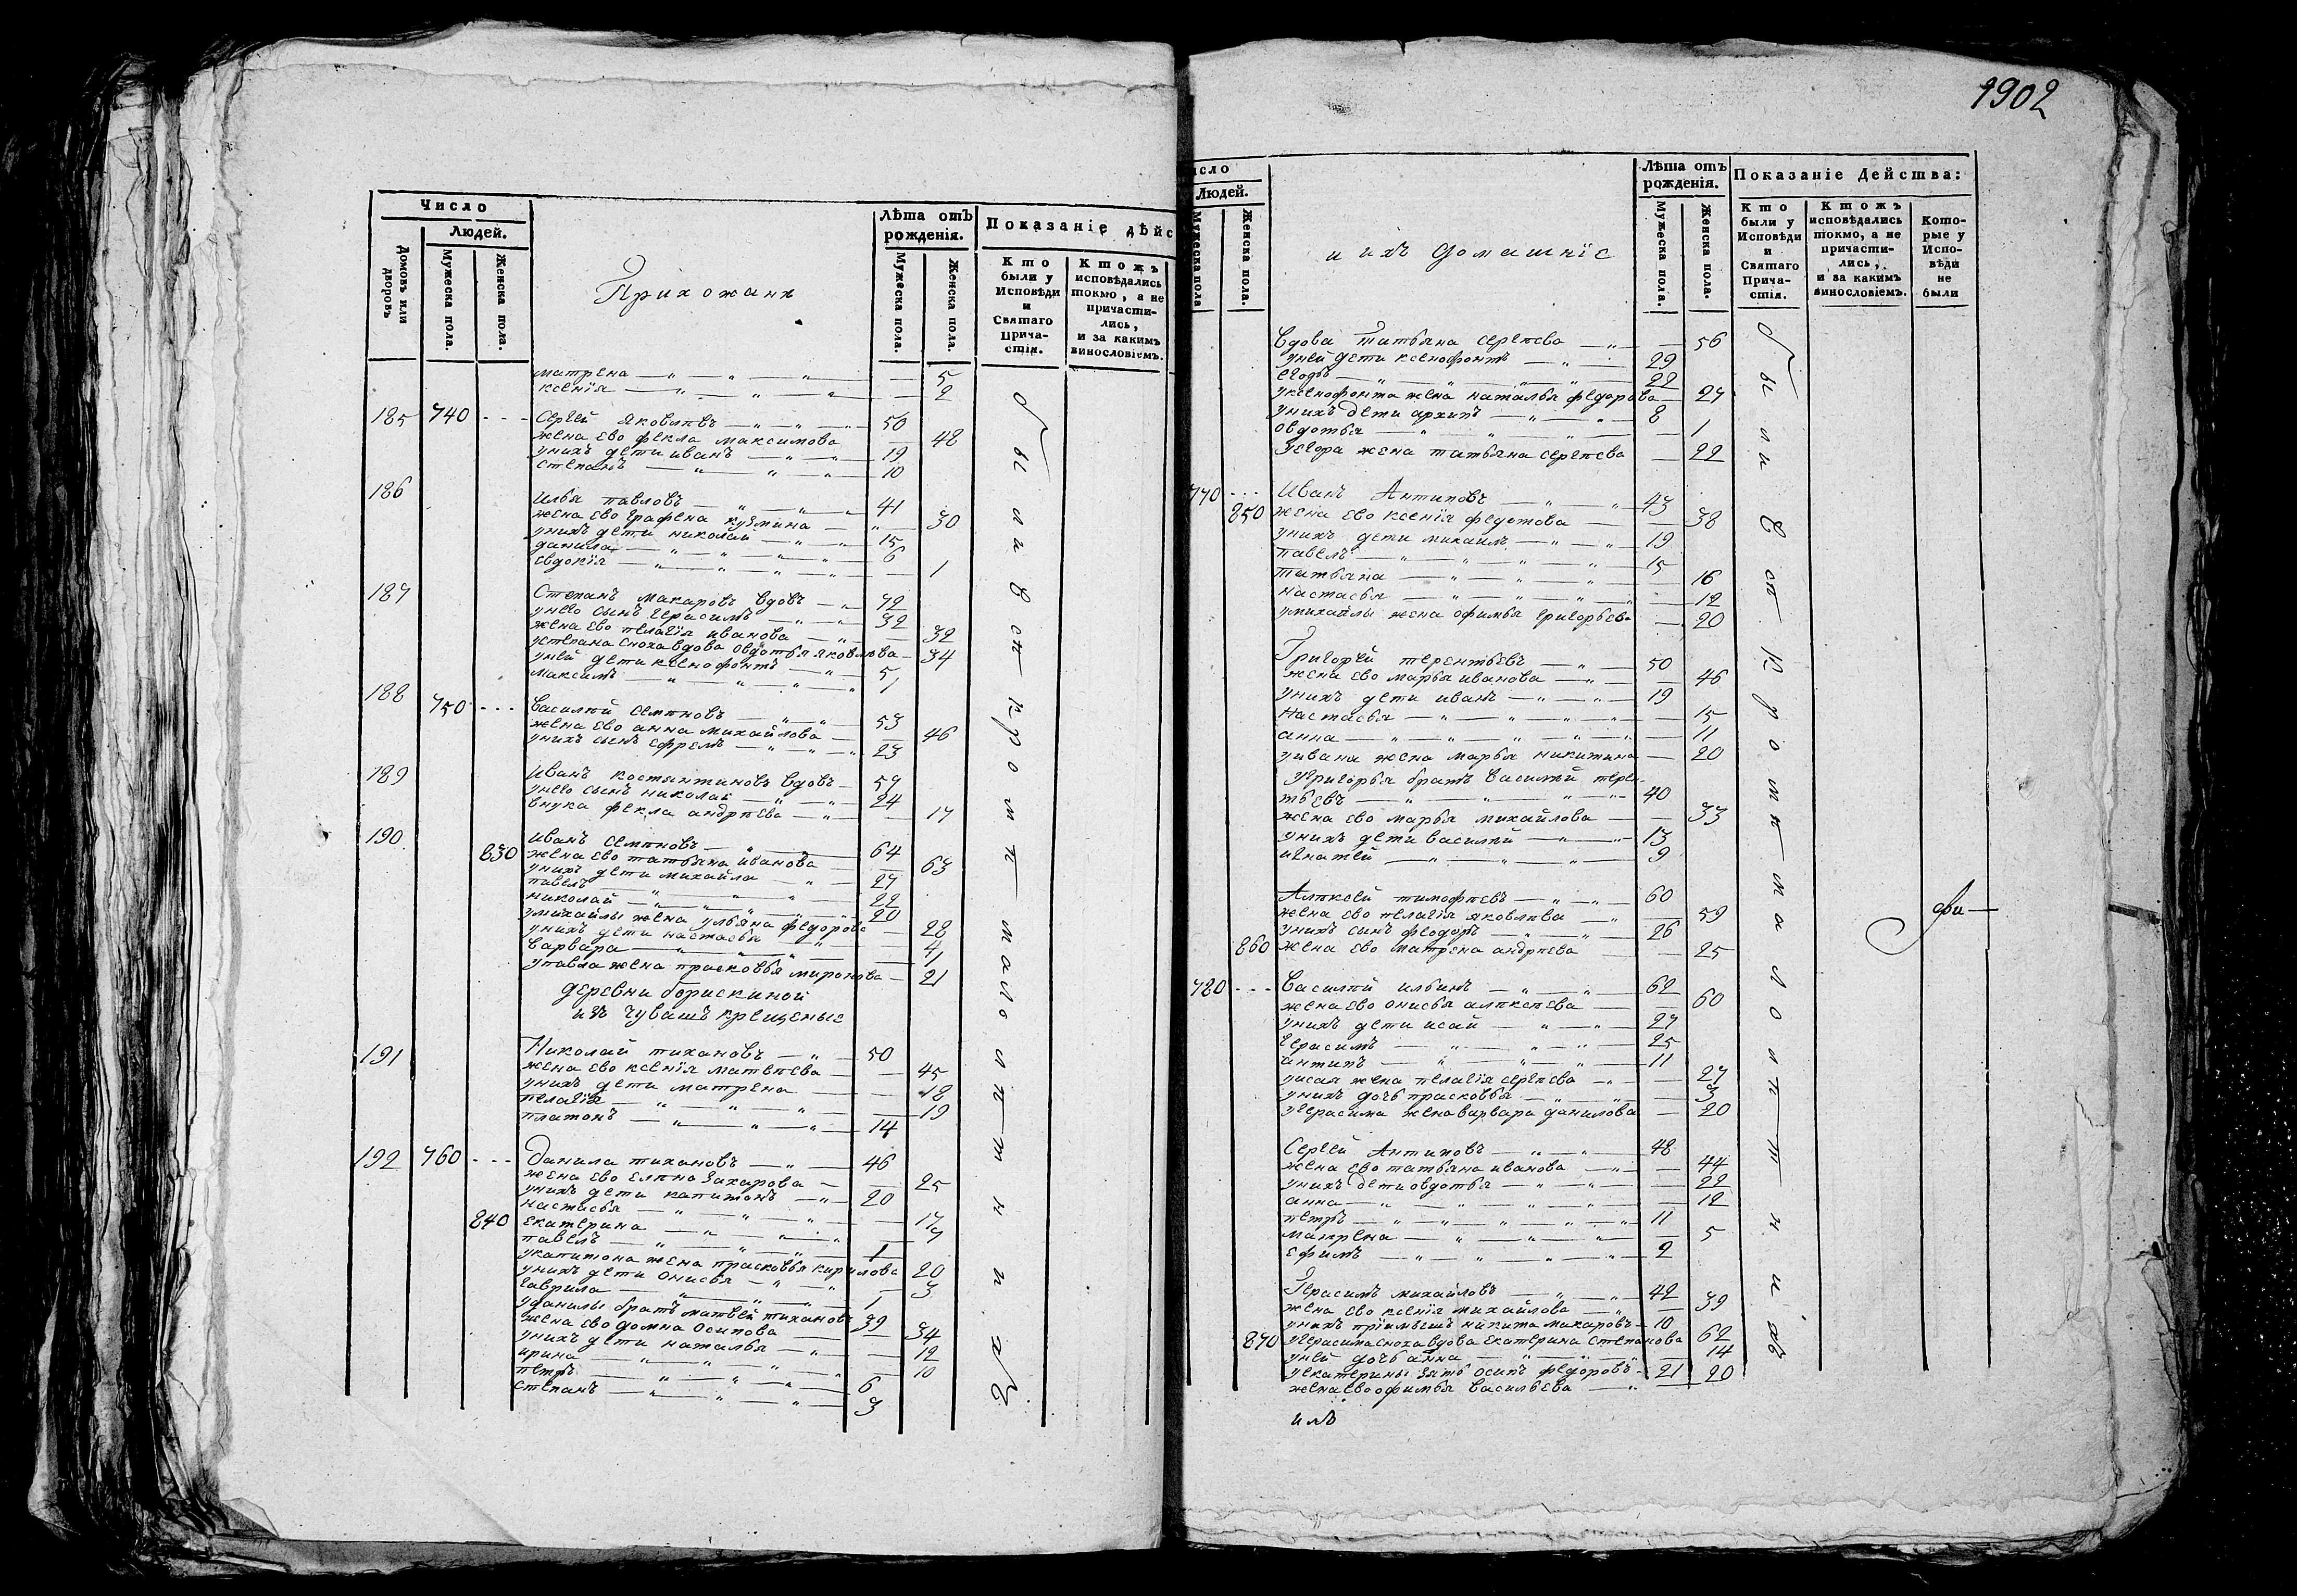 Число
Людей.
Домовъ или дворовъ
Мужеска пола.
Женска пола.
Прихожанѣ
Лѣта отъ рожденія.
Мужеска пола.
Женска пола.
Показаніе дѣйс
Кто были у Исповѣди и Святаго Прича-стія.
Ктожъ исповѣдались токмо, а не причасти-лись, и за какимъ винословіемъ.
матрена — 5
ксенія — 2
185 740 Сергей Яковлевъ 50
жена ево фекла максимова 48
унихъ дети иванъ 19
степанъ 10
186 Илья павловъ 41
жена ево Графена кузмина 30
унихъ дети николай 15
данила 6
евдокія 1
187 Степанъ макаровъ вдовъ 72
унево сынъ Герасимъ 32
жена ево пелагія иванова 32
устепана сноха вдова овдотья яковлѣва 34
уней дети ксенофонтъ 5
максимъ 1
188 750 Василѣй семѣновъ 53
жена ево анна михайлова 46
унихъ сынъ ефремъ 23
189 Иванъ костянтиновъ вдовъ 59
унево сынъ николай 24
внука фекла андрѣева 17
190 иванъ семѣновъ 64
830 жена ево татьяна иванова 63
унихъ дети михайла 27
павелъ 22
николай 20
умихайлы жена ульяна федорова 28
унихъ дети настасья 4
варвара 1
упавла жена прасковья миронова 21
деревни борискиной
изъ чувашъ крещеные
191 Николай тихановъ 50
жена ево ксенія матвѣева 45
унихъ дети матрена 18
пелагія 19
платонъ 14
192 760 Данила тихановъ 46
жена ево елѣна Захарова 25
унихъ дети капитонъ 20
настасья 17
840 екатерина 7
павелъ 1
укапитона жена прасковья кирилова 20
унихъ дети онисья 3
Гаврила 1
уданилы братъ матвей тихановъ 39
жена ево домна осипова 34
унихъ дети наталья 12
ирина 10
петръ 6
степанъ 3
были вси кромѣ малолѣтнихъ
1902
исло
Людей.
Мужеска пола
Женска пола.
и ихъ домашніе
Лѣта отъ рожденія.
Мужеска пола.
Женска пола.
Показаніе Действа:
Кто были у Исповѣди и Святаго Прича-стія.
Ктожъ исповѣдались токмо, а не причасти-лись, и за какимъ винословіемъ.
Кото-рые у Испо-вѣди не были
Вдова Татьяна сергѣева 56
уней дети ксенофонтъ 29
егоръ 22
уксенофонта жена наталья федорова 27
унихъ дети архипъ 8
овдотья 1
уегора жена татьяна сергѣева 22
770 Иванъ Антиповъ 43
850 жена ево ксенія федотова 38
унихъ дети михаилъ 19
павелъ 15
татьяна 16
настасья 12
умихайлы жена офимья григорьева 20
Григорей терентьевъ 50
жена ево марья иванова 46
унихъ дети иванъ 19
настасья 15
анна 11
уивана жена марья никитина 20
угригорья братъ василѣй терен-
тьевъ 40
жена ево марья михайлова 33
унихъ дети василѣй 13
игнатей 9
Алѣксей тимофѣевъ 60
жена ево пелагія яковлѣва 59
унихъ сынъ феодоръ 26
860 жена ево матрена андрѣева 25
780 Василѣй ильинъ 62
жена ево онисья алѣксѣева 60
унихъ дети исай 27
Герасимъ 25
антипъ 11
уисая жена пелагія сергѣева 27
унихъ дочь прасковья 3
угерасима жена варвара данилова 20
Сергей Антиповъ 48
жена ево татьяна иванова 44
унихъ дети овдотья 22
анна 12
петръ 11
матрена 5
ефимъ 2
Герасимъ михайловъ 42
жена ево ксенія михайлова 39
унихъ пріимышъ никита макаровъ 10
870 угерасима сноха вдова екатерина степанова 62
уней дочь анна 14
уекатерины зять осипъ федоровъ 21
жена ево офимья васильева 20
были вси кромѣ малолѣтнихъ